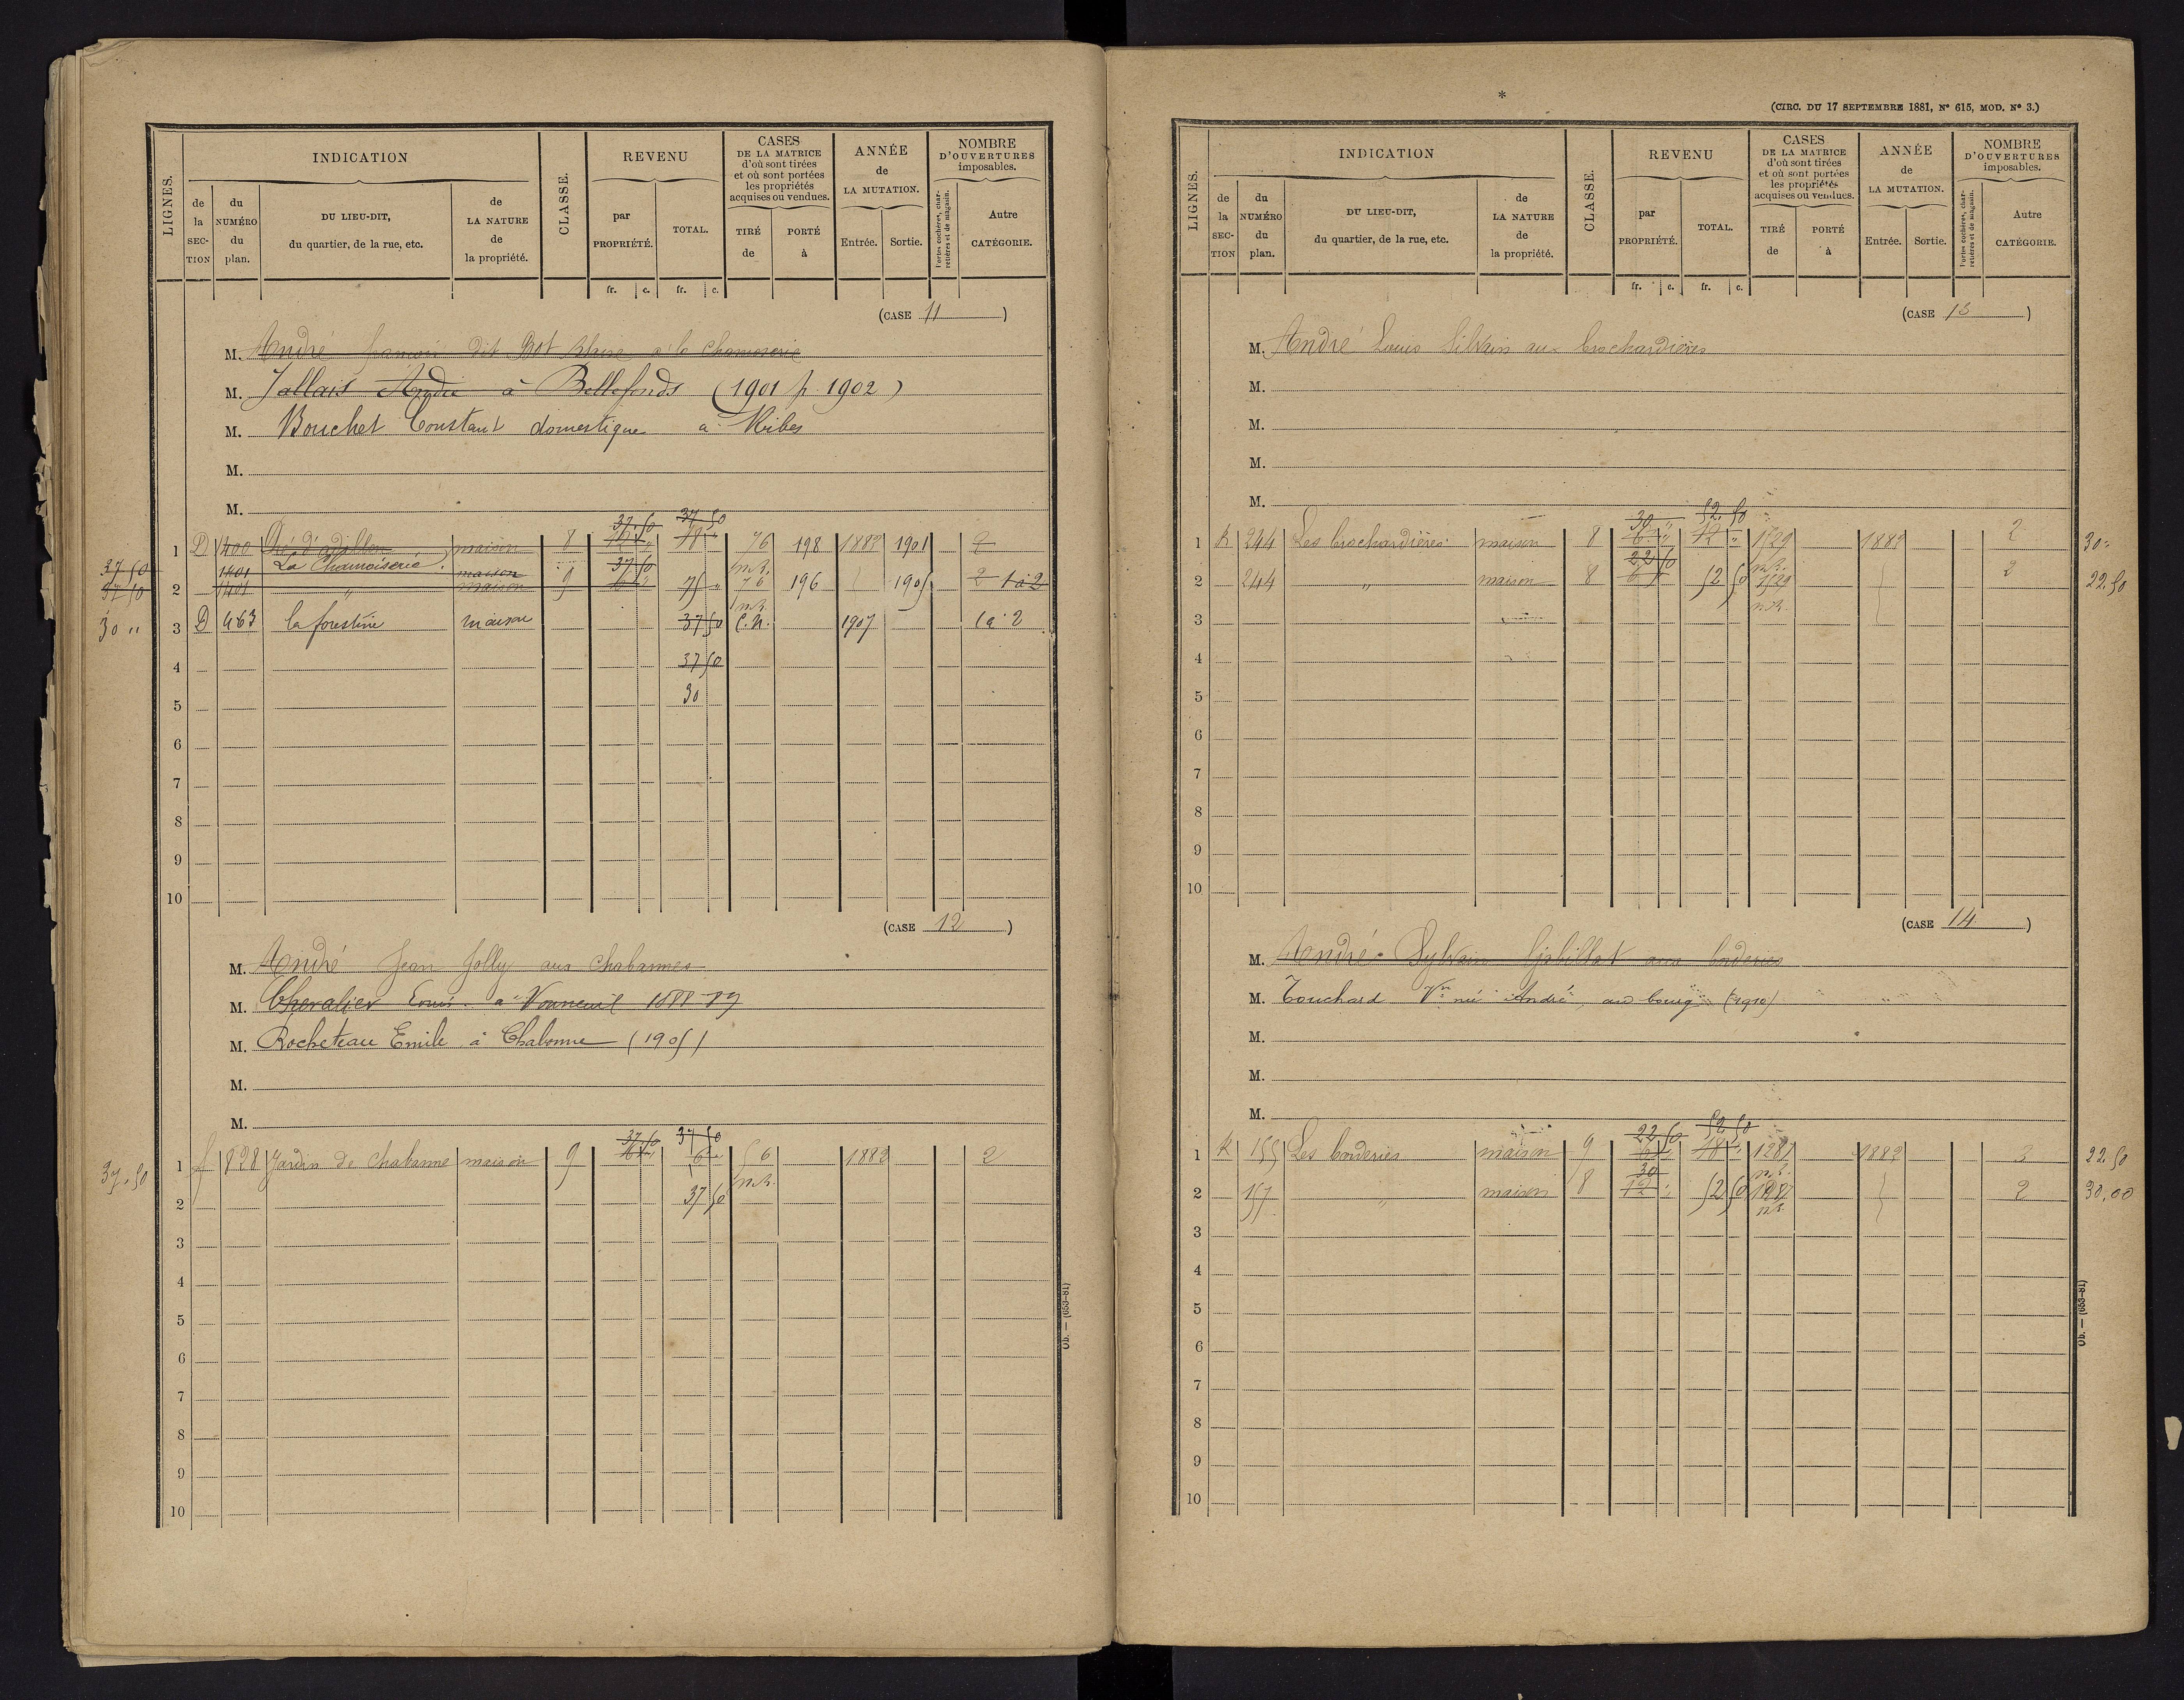 INDICATION
CLASSE.
REVENU
CASES
DE LA MATRICE
d'où sont tirées
et où sont portées
les propriétés
acquises ou vendues.
ANNÉE
de
LA MUTATION.
NOMBRE
D'OUVERTURES
imposables.
LIGNES.
de la SECTION
du NUMÉRO du plan.
DU LIEU-DIT,
du quartier, de la rue, etc.
de LA NATURE de la propriété.
par PROPRIÉTÉ.
TOTAL.
TIRÉ de
PORTÉ à
Entrée.
Sortie.
Portes cochères, charretières et de magasin.
Autre CATÉGORIE.
fr. c. fr. c.
(CASE 11)
M. André François dit à la Chamoiserie
M. Jallais à Bellefonds (1901 p. 1902)
M. Bouchet Constant domestique à Ribes
M.
M.
37.50 37 50
1 D 1400 maison 8 18 76 198 1882 1901 2
37 50 1401 La Chamoiserie maison 37 50 n.R.
37 50 2 1401 " maison 9 75 " 76 196 1905 2 1 à 2
n.R.
30 " 3 D 463 la forestine maison 37 50 C.N. 1907 1 à 2
4 37 50
5 30
6
7
8
9
10
(CASE 12)
M. André Jean Jolly aux Chabannes
M. Chevalier Louis à Vouneuil 1888-89
M. Rocheteau Emile à Chabonne (1905)
M.
M.
37.50 37 50
37.50 1 f 828 Jardin de Chabanne maison 9 56 1882 2
n.R.
2 37 50
3
4
5
6
7
8
9
10
Ob. — (653-81)
*
(CIRC. DU 17 SEPTEMBRE 1881, N° 615, MOD. N° 3.)
INDICATION
CLASSE.
REVENU
CASES
DE LA MATRICE
d'où sont tirées
et où sont portées
les propriétés
acquises ou vendues.
ANNÉE
de
LA MUTATION.
NOMBRE
D'OUVERTURES
imposables.
LIGNES.
de la SECTION
du NUMÉRO du plan.
DU LIEU-DIT,
du quartier, de la rue, etc.
de LA NATURE de la propriété.
par PROPRIÉTÉ.
TOTAL.
TIRÉ de
PORTÉ à
Entrée.
Sortie.
Portes cochères, charretières et de magasin.
Autre CATÉGORIE.
fr. c. fr. c.
(CASE 13)
M. André Louis Silvain aux brochardières
M.
M.
M.
M.
30 " 52.50
1 K 244 Les brochardières maison 8 12 " 1529 1882 2 30 "
22 50 n.R.
2 244 " maison 8 52 50 1529 2 22.50
n.R.
3
4
5
6
7
8
9
10
(CASE 14)
M. André Sylvain aux borderies
M. Touchard Vve née André au bourg (1910)
M.
M.
M.
22 50 52.50
1 K 155 Les borderies maison 9 18 " 1281 1882 2 22.50
30 n.R.
2 157 " maison 8 52 50 2 30.00
n.R.
3
4
5
6
7
8
9
10
Ob. — (653-81)